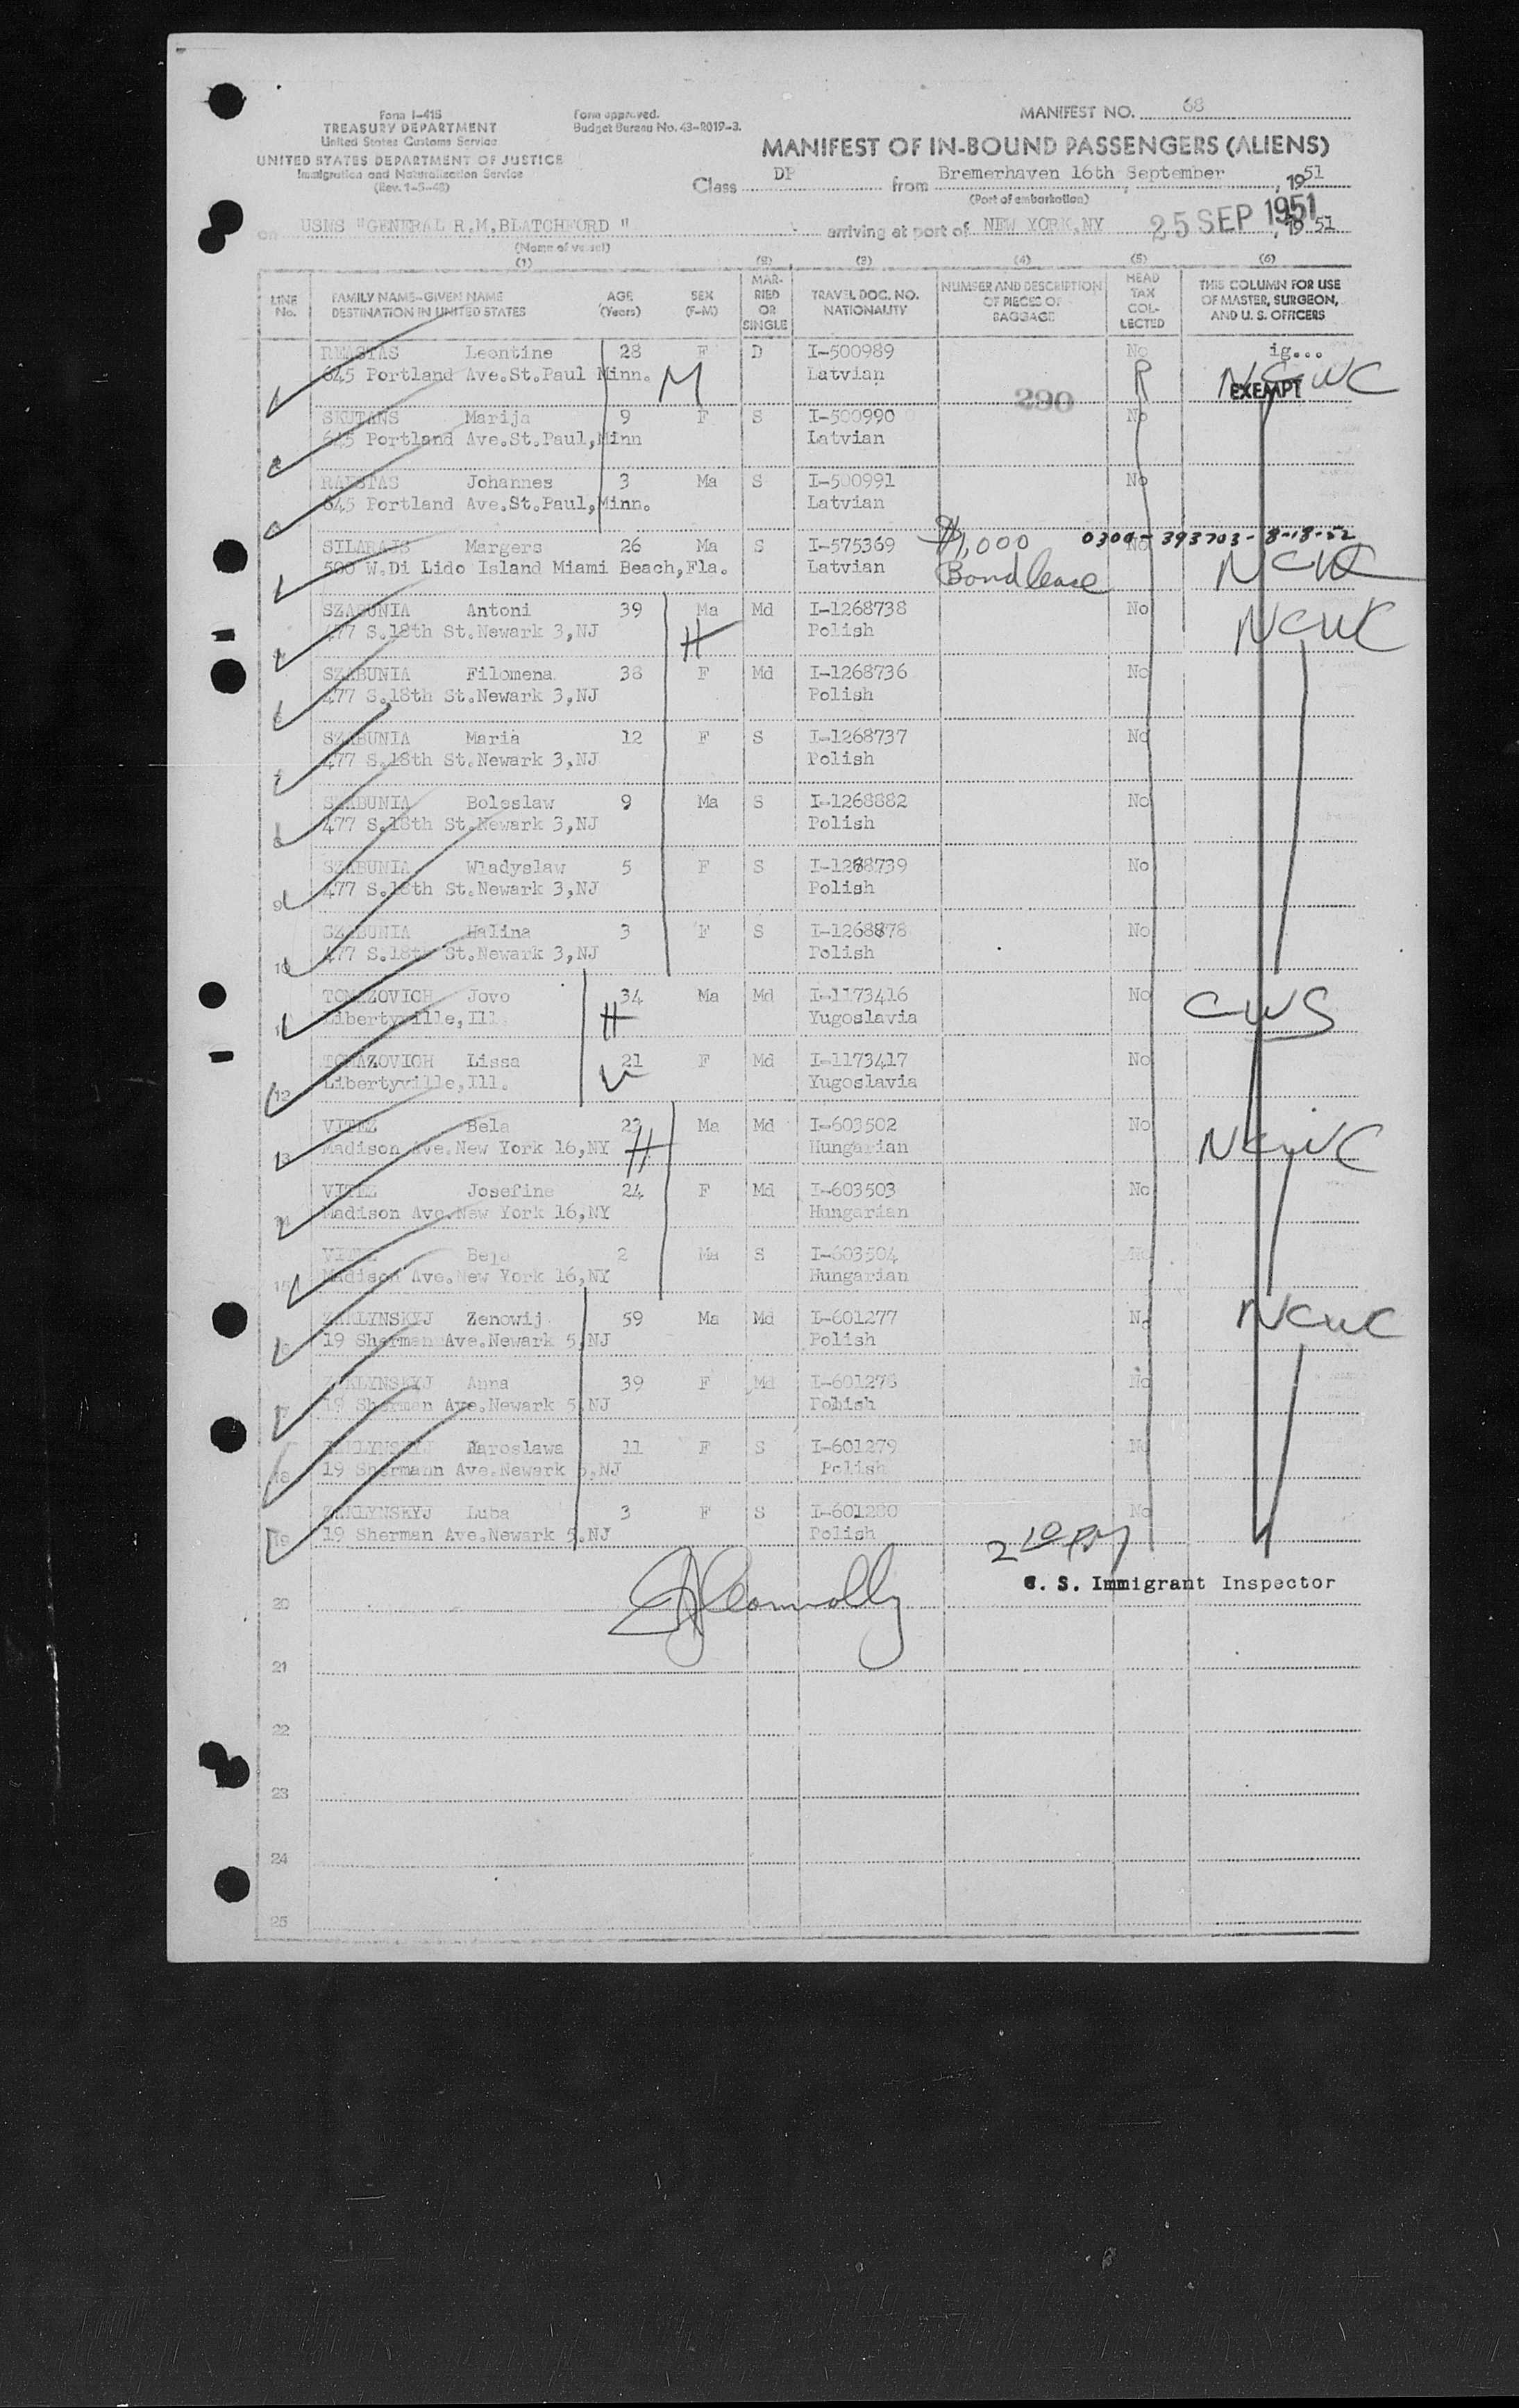 Form I-415
TREASURY DEPARTMENT
United States Customs Service
UNITED STATES DEPARTMENT OF JUSTICE
Immigration and Naturalization Service
(Rev. 1-5-48)
Form approved.
Budget Bureau No. 43-R019-3.
MANIFEST NO. 68
MANIFEST OF IN-BOUND PASSENGERS (ALIENS)
Class DP from Bremerhaven 16th September, 1951
(Port of embarkation)
on USNS "GENERAL R.M.BLATCHFORD " arriving at port of NEW YORK,NY 25 SEP 1951, 1951
(Name of vessel)
(1) (2) (3) (4) (5) (6)
LINE No. FAMILY NAME-GIVEN NAME DESTINATION IN UNITED STATES AGE (Years) SEX (F-M) MARRIED OR SINGLE TRAVEL DOC. NO. NATIONALITY NUMBER AND DESCRIPTION OF PIECES OF BAGGAGE HEAD TAX COLLECTED THIS COLUMN FOR USE OF MASTER, SURGEON, AND U. S. OFFICERS
1 Leontine 28 F D I-500989 No ig...
645 Portland Ave.St.Paul Minn. M Latvian 290 R NCWC EXEMPT
2 SKUTANS Marija 9 F S I-500990 No
645 Portland Ave.St.Paul,Minn Latvian
3 Johannes 3 Ma S I-500991 No
645 Portland Ave.St.Paul,Minn. Latvian
SILARAJS Margers 26 Ma S I-575369 $1,000 No 0300-393703-8-18-52
500 W.Di Lido Island Miami Beach,Fla. Latvian Bond NCWC
SZABUNIA Antoni 39 Ma Md I-1268738 No NCWC
477 S.18th St.Newark 3,NJ H Polish
6 SZABUNIA Filomena 38 F Md I-1268736 No
477 S.18th St.Newark 3,NJ Polish
7 SZABUNIA Maria 12 F S I-1268737 No
477 S.18th St.Newark 3,NJ Polish
8 SZABUNIA Boleslaw 9 Ma S I-1268882 No
477 S.18th St.Newark 3,NJ Polish
9 SZABUNIA Wladyslaw 5 F S I-1268739 No
477 S.18th St.Newark 3,NJ Polish
10 SZABUNIA Halina 3 F S I-1268878 No
477 S.18th St.Newark 3,NJ Polish
11 TOMAZOVICH Jovo 34 Ma Md I-1173416 No CWS
Libertyville,Ill H Yugoslavia
12 TOMAZOVICH Lissa 21 F Md I-1173417 No
Libertyville,Ill. Yugoslavia
13 VITEZ Bela 23 Ma Md I-603502 No NCWC
Madison Ave.New York 16,NY H Hungarian
14 VITEZ Josefine 24 F Md I-603503 No
Madison Ave.New York 16,NY Hungarian
15 VITEZ Bela 2 Ma S I-603504 No
Madison Ave.New York 16,NY Hungarian
ZAKLYNSKYJ Zenowij 59 Ma Md I-601277 No NCWC
19 Sherman Ave.Newark 5,NJ Polish
17 ZAKLYNSKYJ Anna 39 F Md I-601278 No
19 Sherman Ave.Newark 5,NJ Polish
18 ZAKLYNSKYJ Jaroslawa 11 F S I-601279 No
19 Shermann Ave.Newark 5,NJ Polish
19 ZAKLYNSKYJ Luba 3 F S I-601280 No
19 Sherman Ave.Newark 5.NJ Polish
2 10 PM
U. S. Immigrant Inspector
20 Connolly
21
22
23
24
25